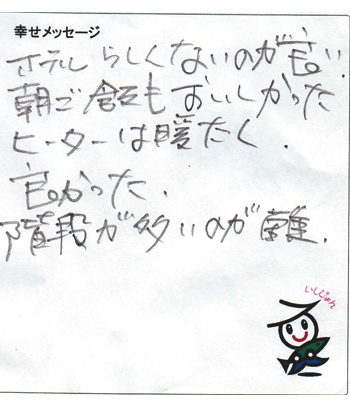 幸せメッセージ
ホテルらしくないのが良い.
朝ご飯もおいしかった
ヒーターは暖たく.
良かった.
階段が多いのが難.
いしじゅん